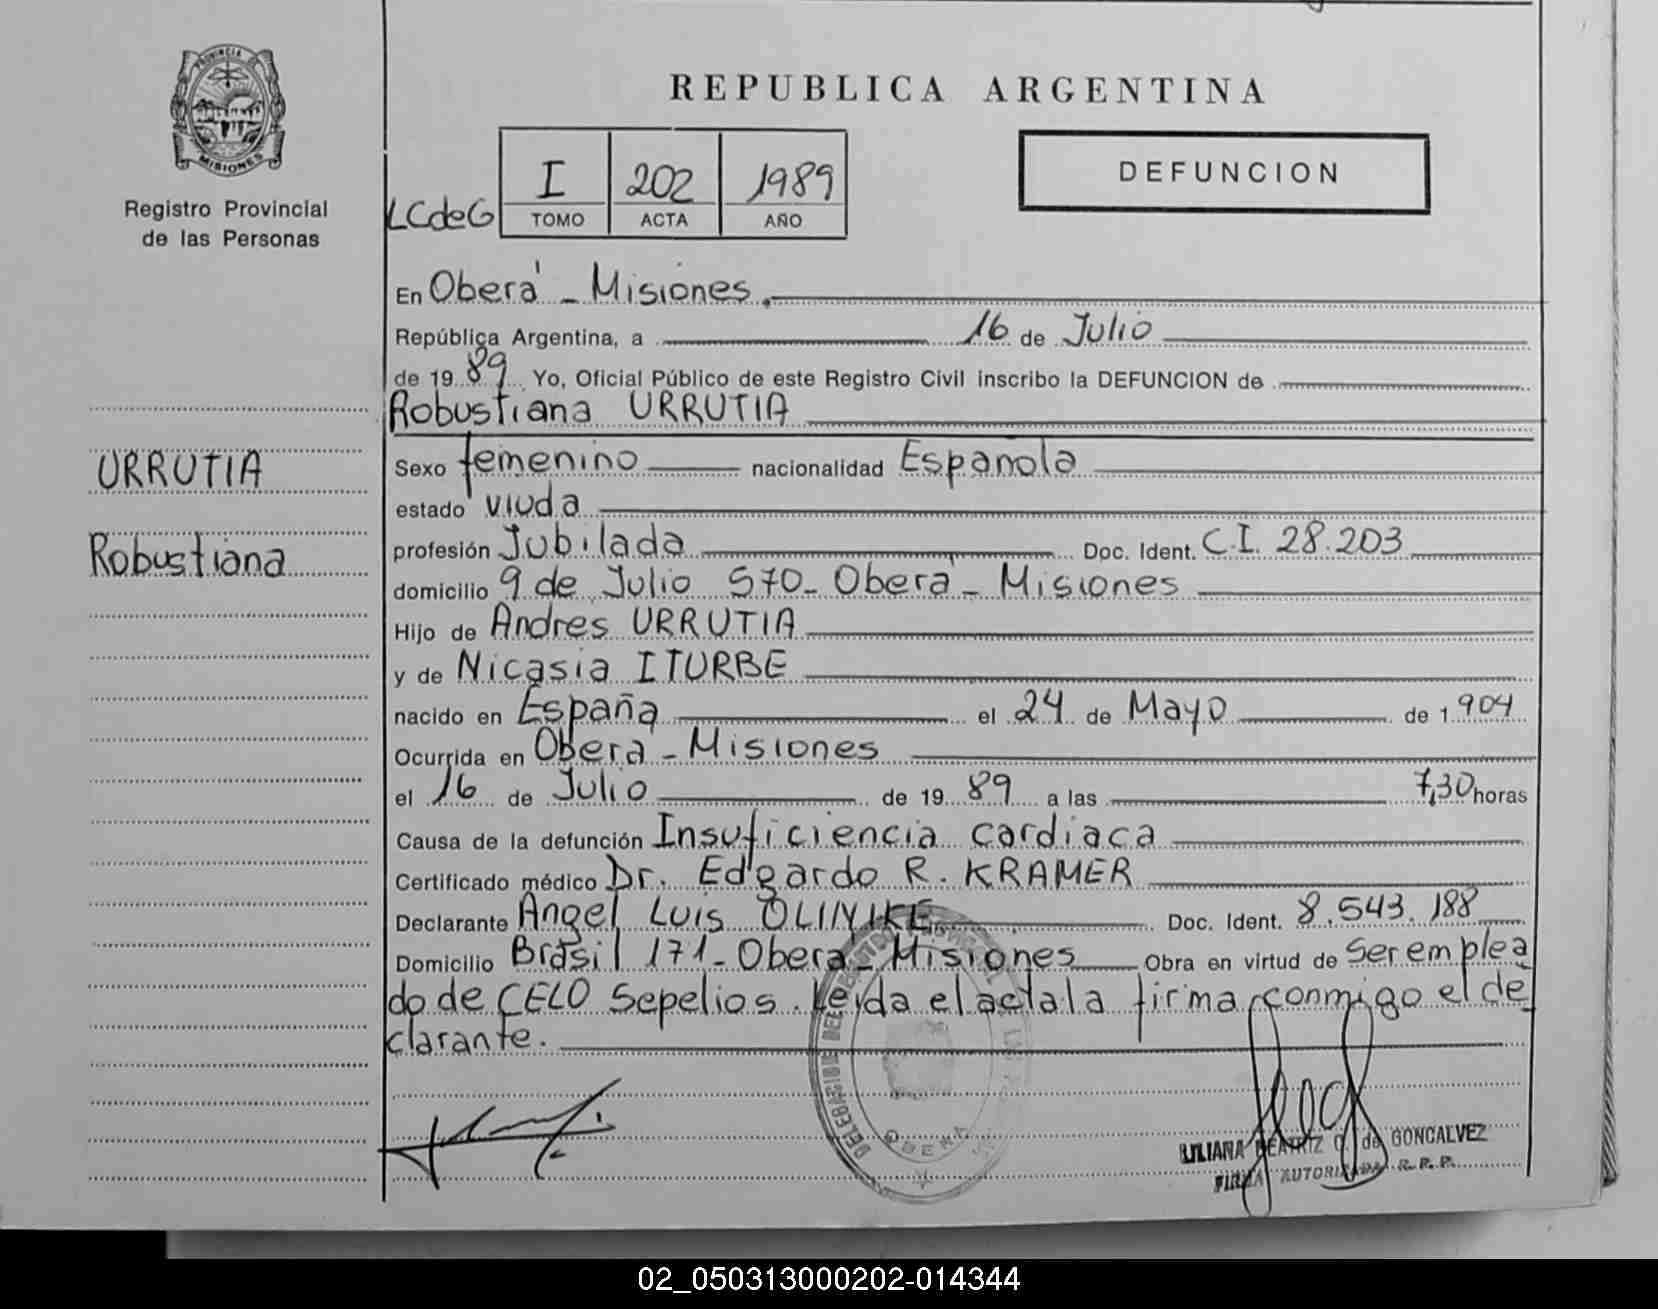 PROVINCIA DE
MISIONES
Registro Provincial
de las Personas
REPUBLICA ARGENTINA
DEFUNCION
LCdeG
I 202 1989
TOMO ACTA AÑO
En Oberá - Misiones.
República Argentina, a 16 de Julio
de 19 89 Yo, Oficial Público de este Registro Civil inscribo la DEFUNCION de
Robustiana URRUTIA
URRUTIA
Robustiana
Sexo femenino nacionalidad Española
estado viuda
profesión Jubilada Doc. Ident. C.I. 28.203
domicilio 9 de Julio 570- Oberá - Misiones
Hijo de Andres URRUTIA
y de Nicasia ITURBE
nacido en España el 24 de Mayo de 1.904
Ocurrida en Obera - Misiones
el 16 de Julio de 19 89 a las 7,30 horas
Causa de la defunción Insuficiencia cardiaca
Certificado médico Dr. Edgardo R. KRAMER
Declarante Angel Luis Doc. Ident. 8.543.188
Domicilio Brasil 171- Obera - Misiones Obra en virtud de ser emplea
do de CELO Sepelios. Leida el acta la firma conmigo el de
clarante.
OBERA
LILIANA BEATRIZ de GONCALVEZ
FIRMA AUTORIZADA R. P. P.
02_050313000202-014344